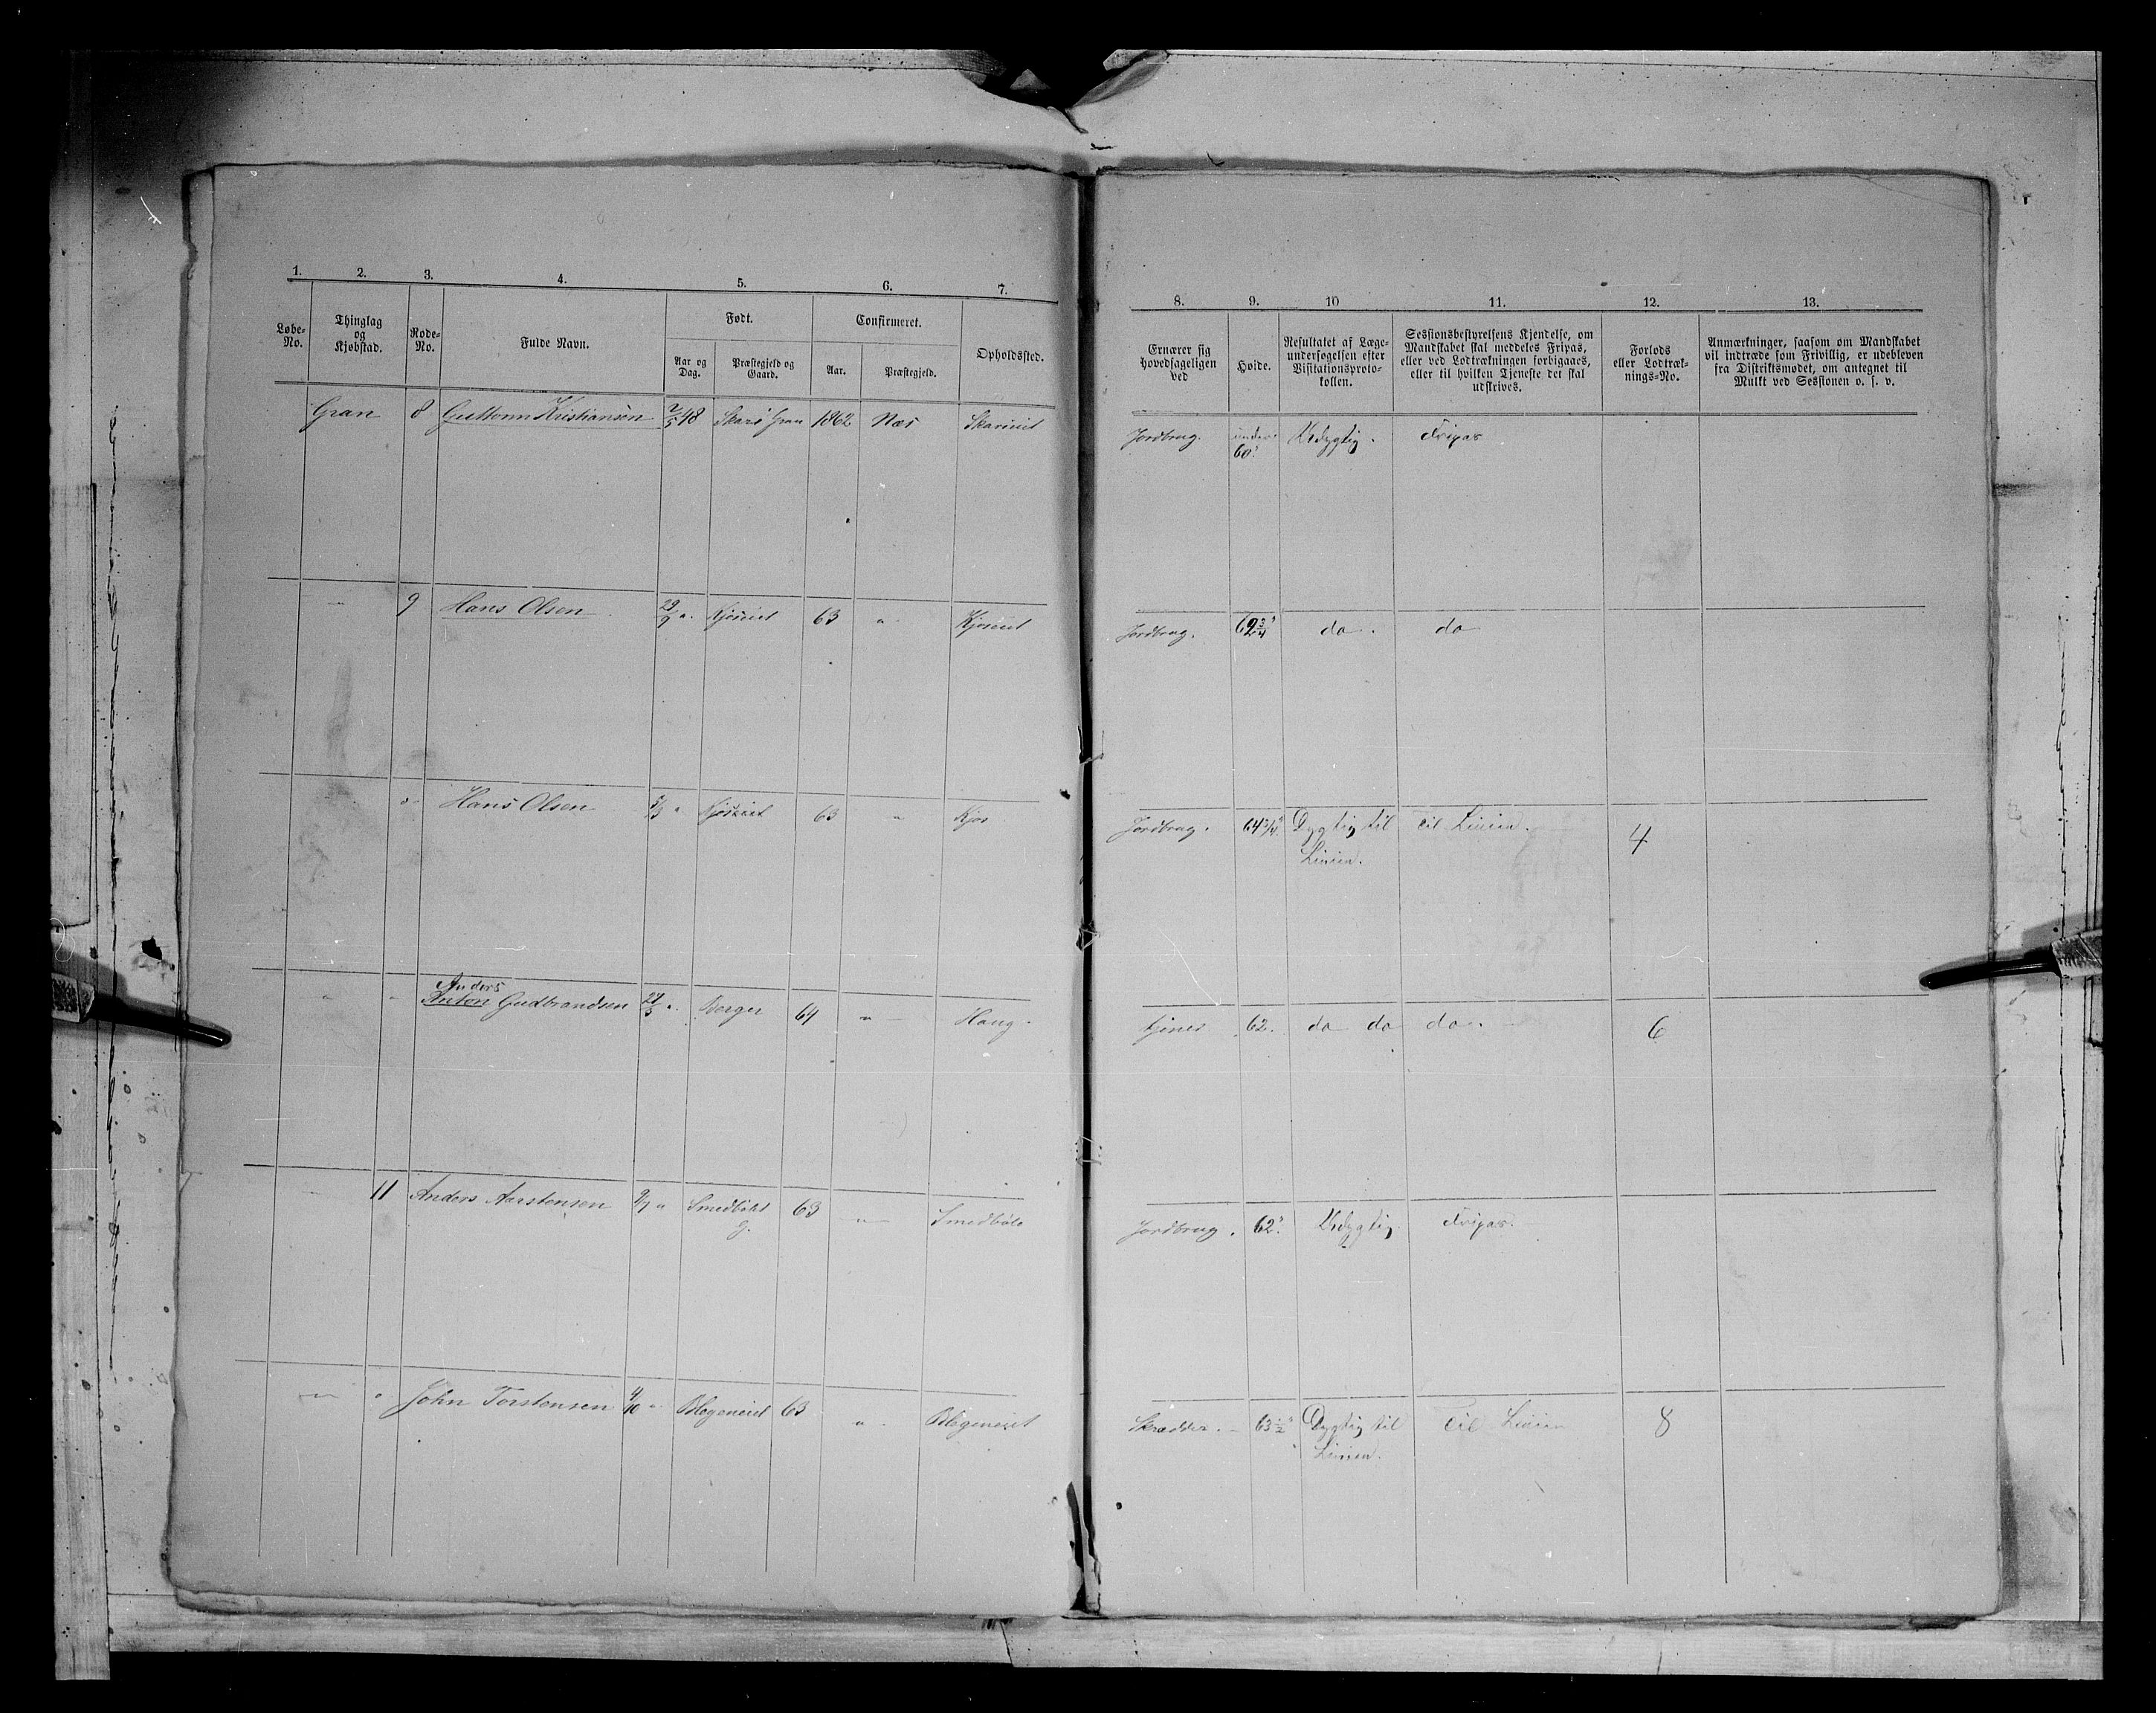 1. 2. 3. 4. 5. 6. 7.
Løbe-No. Thinglag og Kjøbstad. Rode-No. Fulde Navn. Født. Confirmeret. Opholdssted.
Aar og Dag. Præstegjeld og Gaard. Aar. Præstegjeld.
8. 9. 10 11. 12. 13.
Ernærer sig hovedsageligen ved
Høide.
Resultatet af Læge-
undersøgelsen efter
Visitationsproto-
kollen.
Sessionsbestyrelsens Kjendelse, om
Mandskabet skal meddeles Fripas,
eller ved Lodtrækningen forbigaaes,
eller til hvilken Tjeneste det skal
udskrives.
Forlods
eller Lodtræk-
nings-No.
Anmærkninger, saasom om Mandskabet
vil indtræde som Frivillig, er udebleven
fra Distriktsmødet, om antegnet til
Mulkt ved Sessionen o. s. v.
Gran 8 Guttorm Kristiansen 48 Gran 1862 Næs Skarieiet
Jordbrug. under 60". Udygtig. Fripas
— 9 Hans Olsen 29/9 " Kjoseiet 63 " Kjoseiet
Jordbrug. 62 3/4" do. do
" Hans Olsen " Kjoseiet 63 " Kjos
Jordbrug. 64 3/4" Dygtig til Til Linien. 4
Linien.
Anders
" " Anton Gudbrandsen 27/5 " Berger 64 " Haug.
tjener 62. do do do. 6
— 11 Anders Aarstensen 9/7 " 63 " Smedbøle
Jordbrug. 62". Udygtig Fripas.
" " John Torstensen 4/10 " Blegeneiet 63 " Blegeneiet
Skrædder. 63 1/2" Dygtig til Til Linien 8
Linien.